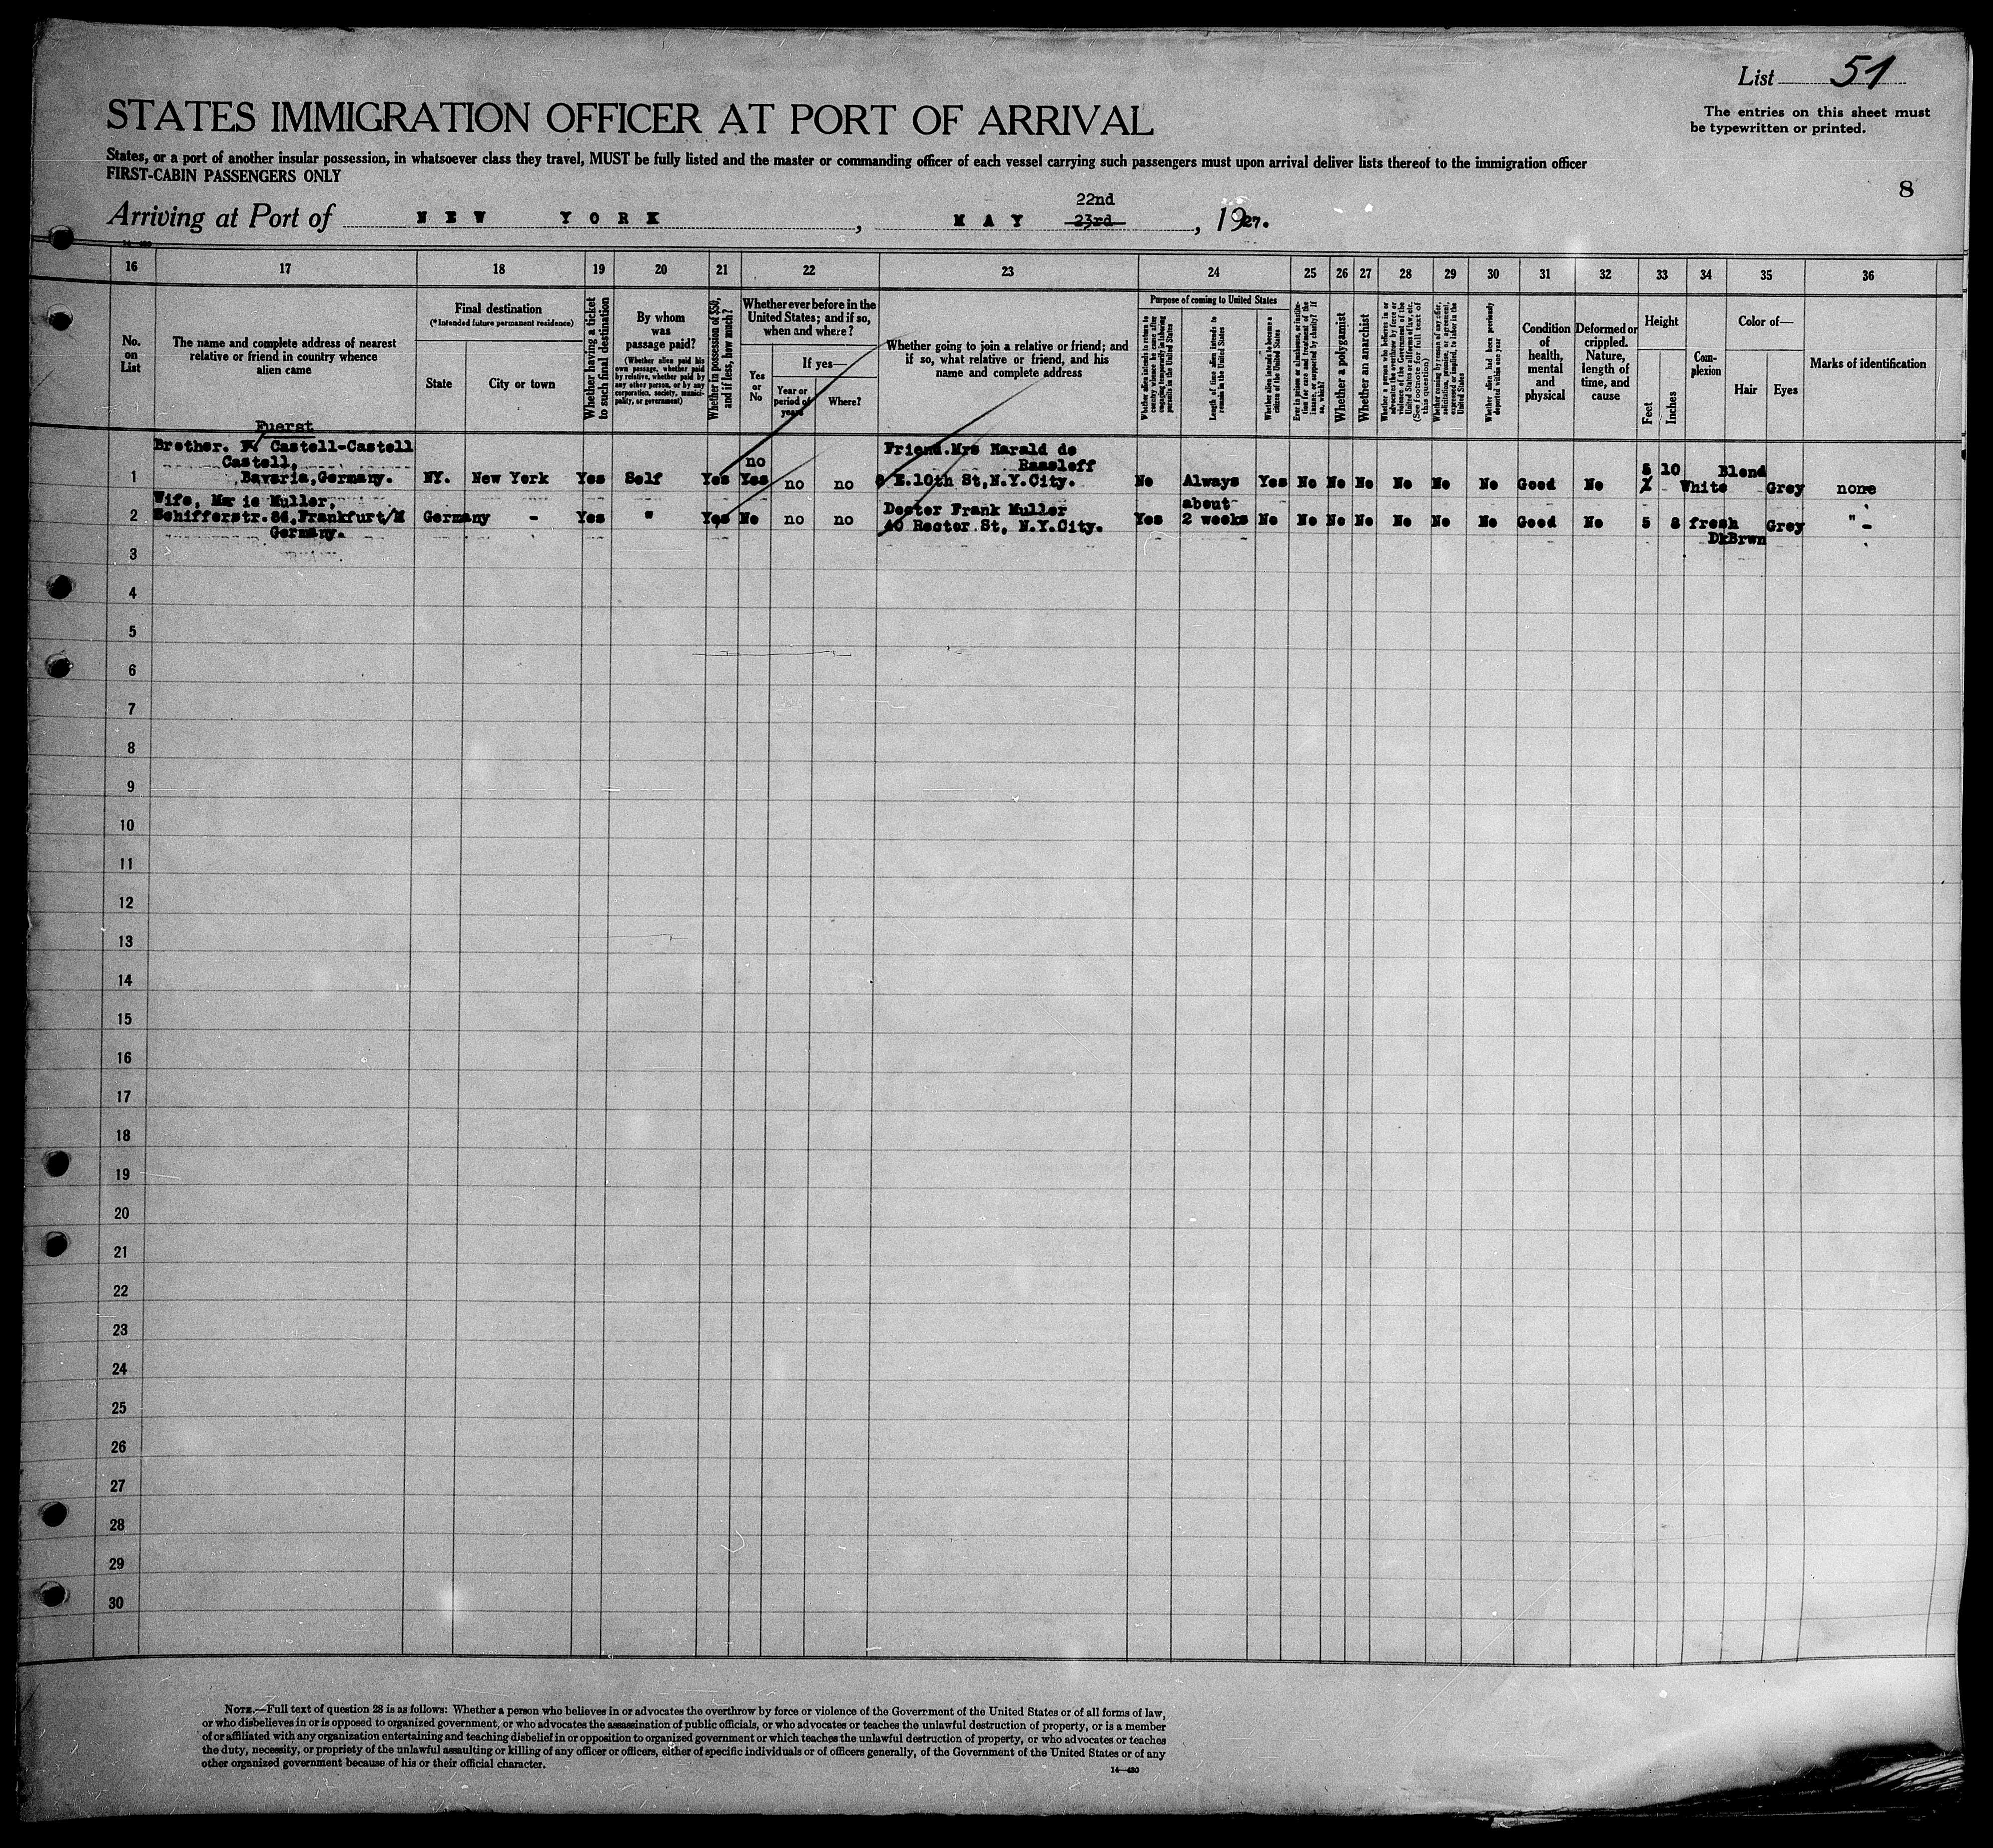 List 51
The entries on this sheet must
be typewritten or printed.
STATES IMMIGRATION OFFICER AT PORT OF ARRIVAL
States, or a port of another insular possession, in whatsoever class they travel, MUST be fully listed and the master or commanding officer of each vessel carrying such passengers must upon arrival deliver lists thereof to the immigration officer
FIRST-CABIN PASSENGERS ONLY
8
22nd
Arriving at Port of NEW YORK, MAY 23rd, 1927.
16 17 18 19 20 21 22 23 24 25 26 27 28 29 30 31 32 33 34 35 36
No. on List
The name and complete address of nearest
relative or friend in country whence
alien came
Final destination
(*Intended future permanent residence)
State
City or town
Whether having a ticket
to such final destination
By whom
was
passage paid?
(Whether alien paid his
own passage, whether paid
by relative, whether paid by
any other person, or by any
corporation, society, munici-
pality, or government)
Whether in possession of $50,
and if less, how much?
Whether ever before in the
United States; and if so,
when and where?
Yes
or
No
If yes—
Year or
period of
years
Where?
Whether going to join a relative or friend; and
if so, what relative or friend, and his
name and complete address
Purpose of coming to United States
Whether alien intends to return to
country whence he came after
engaging temporarily in laboring
pursuits in the United States
Length of time alien intends to
remain in the United States
Whether alien intends to become a
citizen of the United States
Ever in prison or almshouse, or institu-
tion for care and treatment of the
insane, or supported by charity? If
so, which?
Whether a polygamist
Whether an anarchist
Whether a person who believes in or
advocates the overthrow by force or
violence of the Government of the
United States or all forms of law, etc.
(See footnote for full text of
this question)
Whether coming by reason of any offer,
solicitation, promise, or agreement,
expressed or implied, to labor in the
United States
Whether alien had been previously
deported within one year
Condition
of
health,
mental
and
physical
Deformed or
crippled.
Nature,
length of
time, and
cause
Height
Feet
Inches
Com-
plexion
Color of—
Hair
Eyes
Marks of identification
Fuerst
Brother. Castell-Castell
Castell,
Bavaria,Germany.
1 NY. New York Yes Self Yes
no
Yes no no
Friend.Mrs Harald de
Raasloff
E.10th St,N.Y.City.
No Always Yes No No No No No No Good No 5 10 White Blond Grey none
Wife, Marie Muller,
2 Schifferstr.84,Frankfurt/M
Germany.
Germany - Yes " Yes No no no
Doctor Frank Muller
40 Rector St, N.Y.City.
Yes
about
2 weeks No No No No No No No Good No 5 8 fresh DkBrwn Grey " -
3
4
5
6
7
8
9
10
11
12
13
14
15
16
17
18
19
20
21
22
23
24
25
26
27
28
29
30
NOTE.—Full text of question 28 is as follows: Whether a person who believes in or advocates the overthrow by force or violence of the Government of the United States or of all forms of law,
or who disbelieves in or is opposed to organized government, or who advocates the assassination of public officials, or who advocates or teaches the unlawful destruction of property, or is a member
of or affiliated with any organization entertaining and teaching disbelief in or opposition to organized government or which teaches the unlawful destruction of property, or who advocates or teaches
the duty, necessity, or propriety of the unlawful assaulting or killing of any officer or officers, either of specific individuals or of officers generally, of the Government of the United States or of any
other organized government because of his or their official character.
14—430